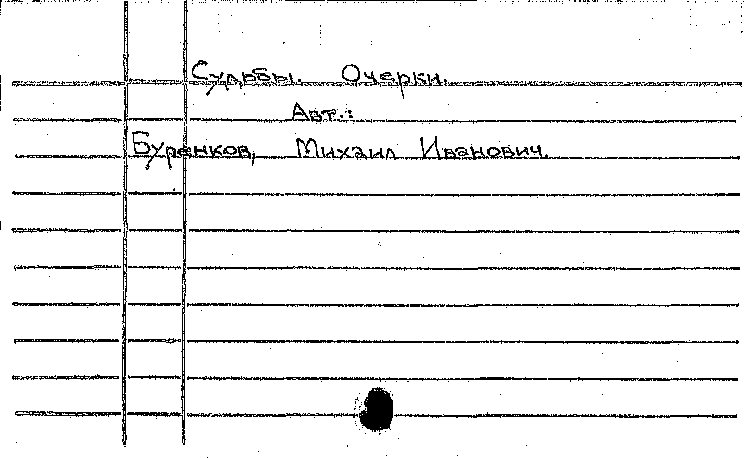 Судьбы. Очерки.
Авт.:
Буренков, Михаил Иванович.